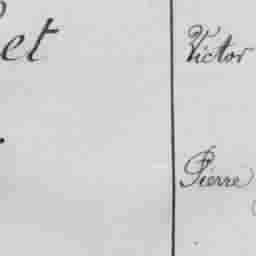 et
Victor
Pierre